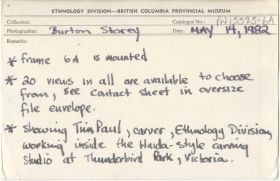 ETHNOLOGY DIVISION—BRITISH COLUMBIA PROVINCIAL MUSEUM
Collection: Catalogue No.: PN15525-6A
Photographer: Burton Storey Date: MAY 14, 1982
Remarks:
* frame 6A is mounted
* 20 views in all are available to choose
from, see contact sheet in oversize
file envelope.
* showing Tim Paul, carver, Ethnology Division,
working inside the Haida-style carving
Studio at Thunderbird Park, Victoria.